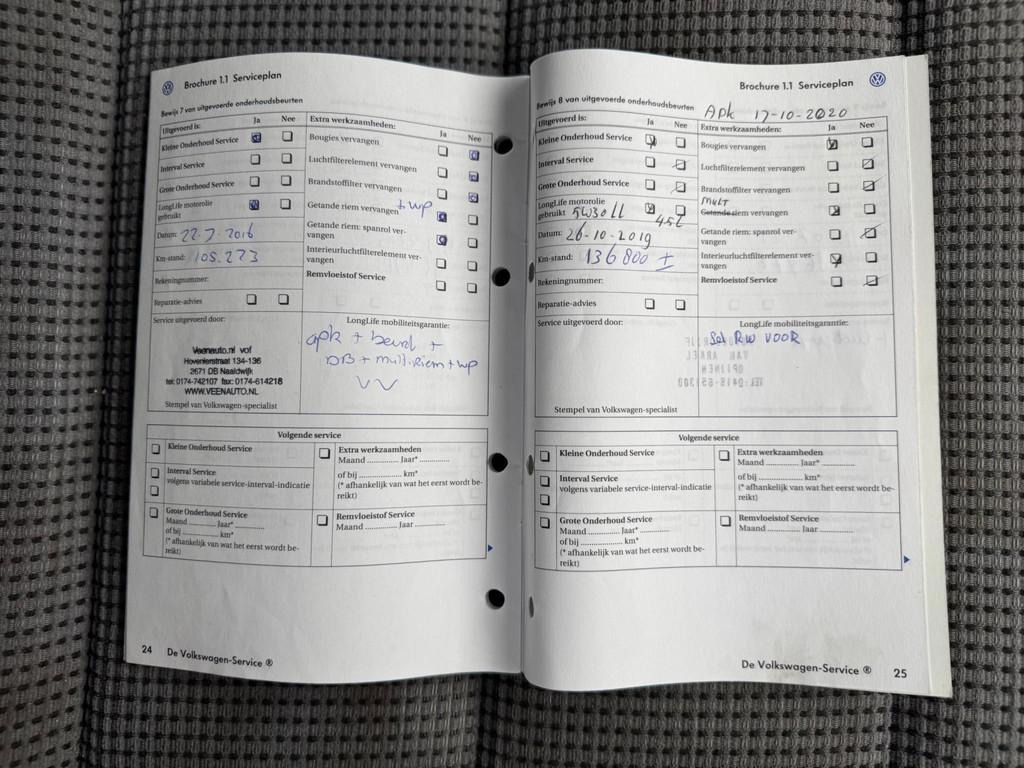 Brochure 1.1 Serviceplan
Bewijs 7 van uitgevoerde onderhoudsbeurten
Uitgevoerd is: Ja Nee
Kleine Onderhoud Service
Interval Service
Grote Onderhoud Service
LongLife motorolie
gebruikt
Datum: 22-7-2016
Km-stand: 105.273
Rekeningnummer:
Reparatie-advies
Extra werkzaamheden: Ja Nee
Bougies vervangen
Luchtfilterelement vervangen
Brandstoffilter vervangen
Getande riem vervangen + wp
Getande riem: spanrol ver-
vangen
Interieurluchtfilterelement ver-
vangen
Remvloeistof Service
Service uitgevoerd door:
Veenauto.nl vof
Hovenierstraat 134-136
2671 DB Naaldwijk
tel: 0174-742107 fax: 0174-614218
WWW.VEENAUTO.NL
Stempel van Volkswagen-specialist
LongLife mobiliteitsgarantie:
apk + beurt +
DB + multi.riem + wp
VV
Volgende service
Kleine Onderhoud Service
Interval Service
volgens variabele service-interval-indicatie
Grote Onderhoud Service
Maand ............ Jaar* ............
of bij ............ km*
(* afhankelijk van wat het eerst wordt be-
reikt)
Extra werkzaamheden
Maand ............ Jaar* ............
of bij ............ km*
(* afhankelijk van wat het eerst wordt be-
reikt)
Remvloeistof Service
Maand ............ Jaar ............
24 De Volkswagen-Service ®
Brochure 1.1 Serviceplan
Bewijs 8 van uitgevoerde onderhoudsbeurten
Apk 17-10-2020
Uitgevoerd is: Ja Nee
Kleine Onderhoud Service
Interval Service
Grote Onderhoud Service
LongLife motorolie
gebruikt 5W30 LL 4.5L
Datum: 26-10-2019
Km-stand: 136800 ±
Rekeningnummer:
Reparatie-advies
Extra werkzaamheden: Ja Nee
Bougies vervangen
Luchtfilterelement vervangen
Brandstoffilter vervangen
MULT
Getande riem vervangen
Getande riem: spanrol ver-
vangen
Interieurluchtfilterelement ver-
vangen
Remvloeistof Service
Service uitgevoerd door:
Stempel van Volkswagen-specialist
LongLife mobiliteitsgarantie:
Set RW VOOR
Volgende service
Kleine Onderhoud Service
Interval Service
volgens variabele service-interval-indicatie
Grote Onderhoud Service
Maand ............ Jaar* ............
of bij ............ km*
(* afhankelijk van wat het eerst wordt be-
reikt)
Extra werkzaamheden
Maand ............ Jaar* ............
of bij ............ km*
(* afhankelijk van wat het eerst wordt be-
reikt)
Remvloeistof Service
Maand ............ Jaar ............
De Volkswagen-Service ® 25